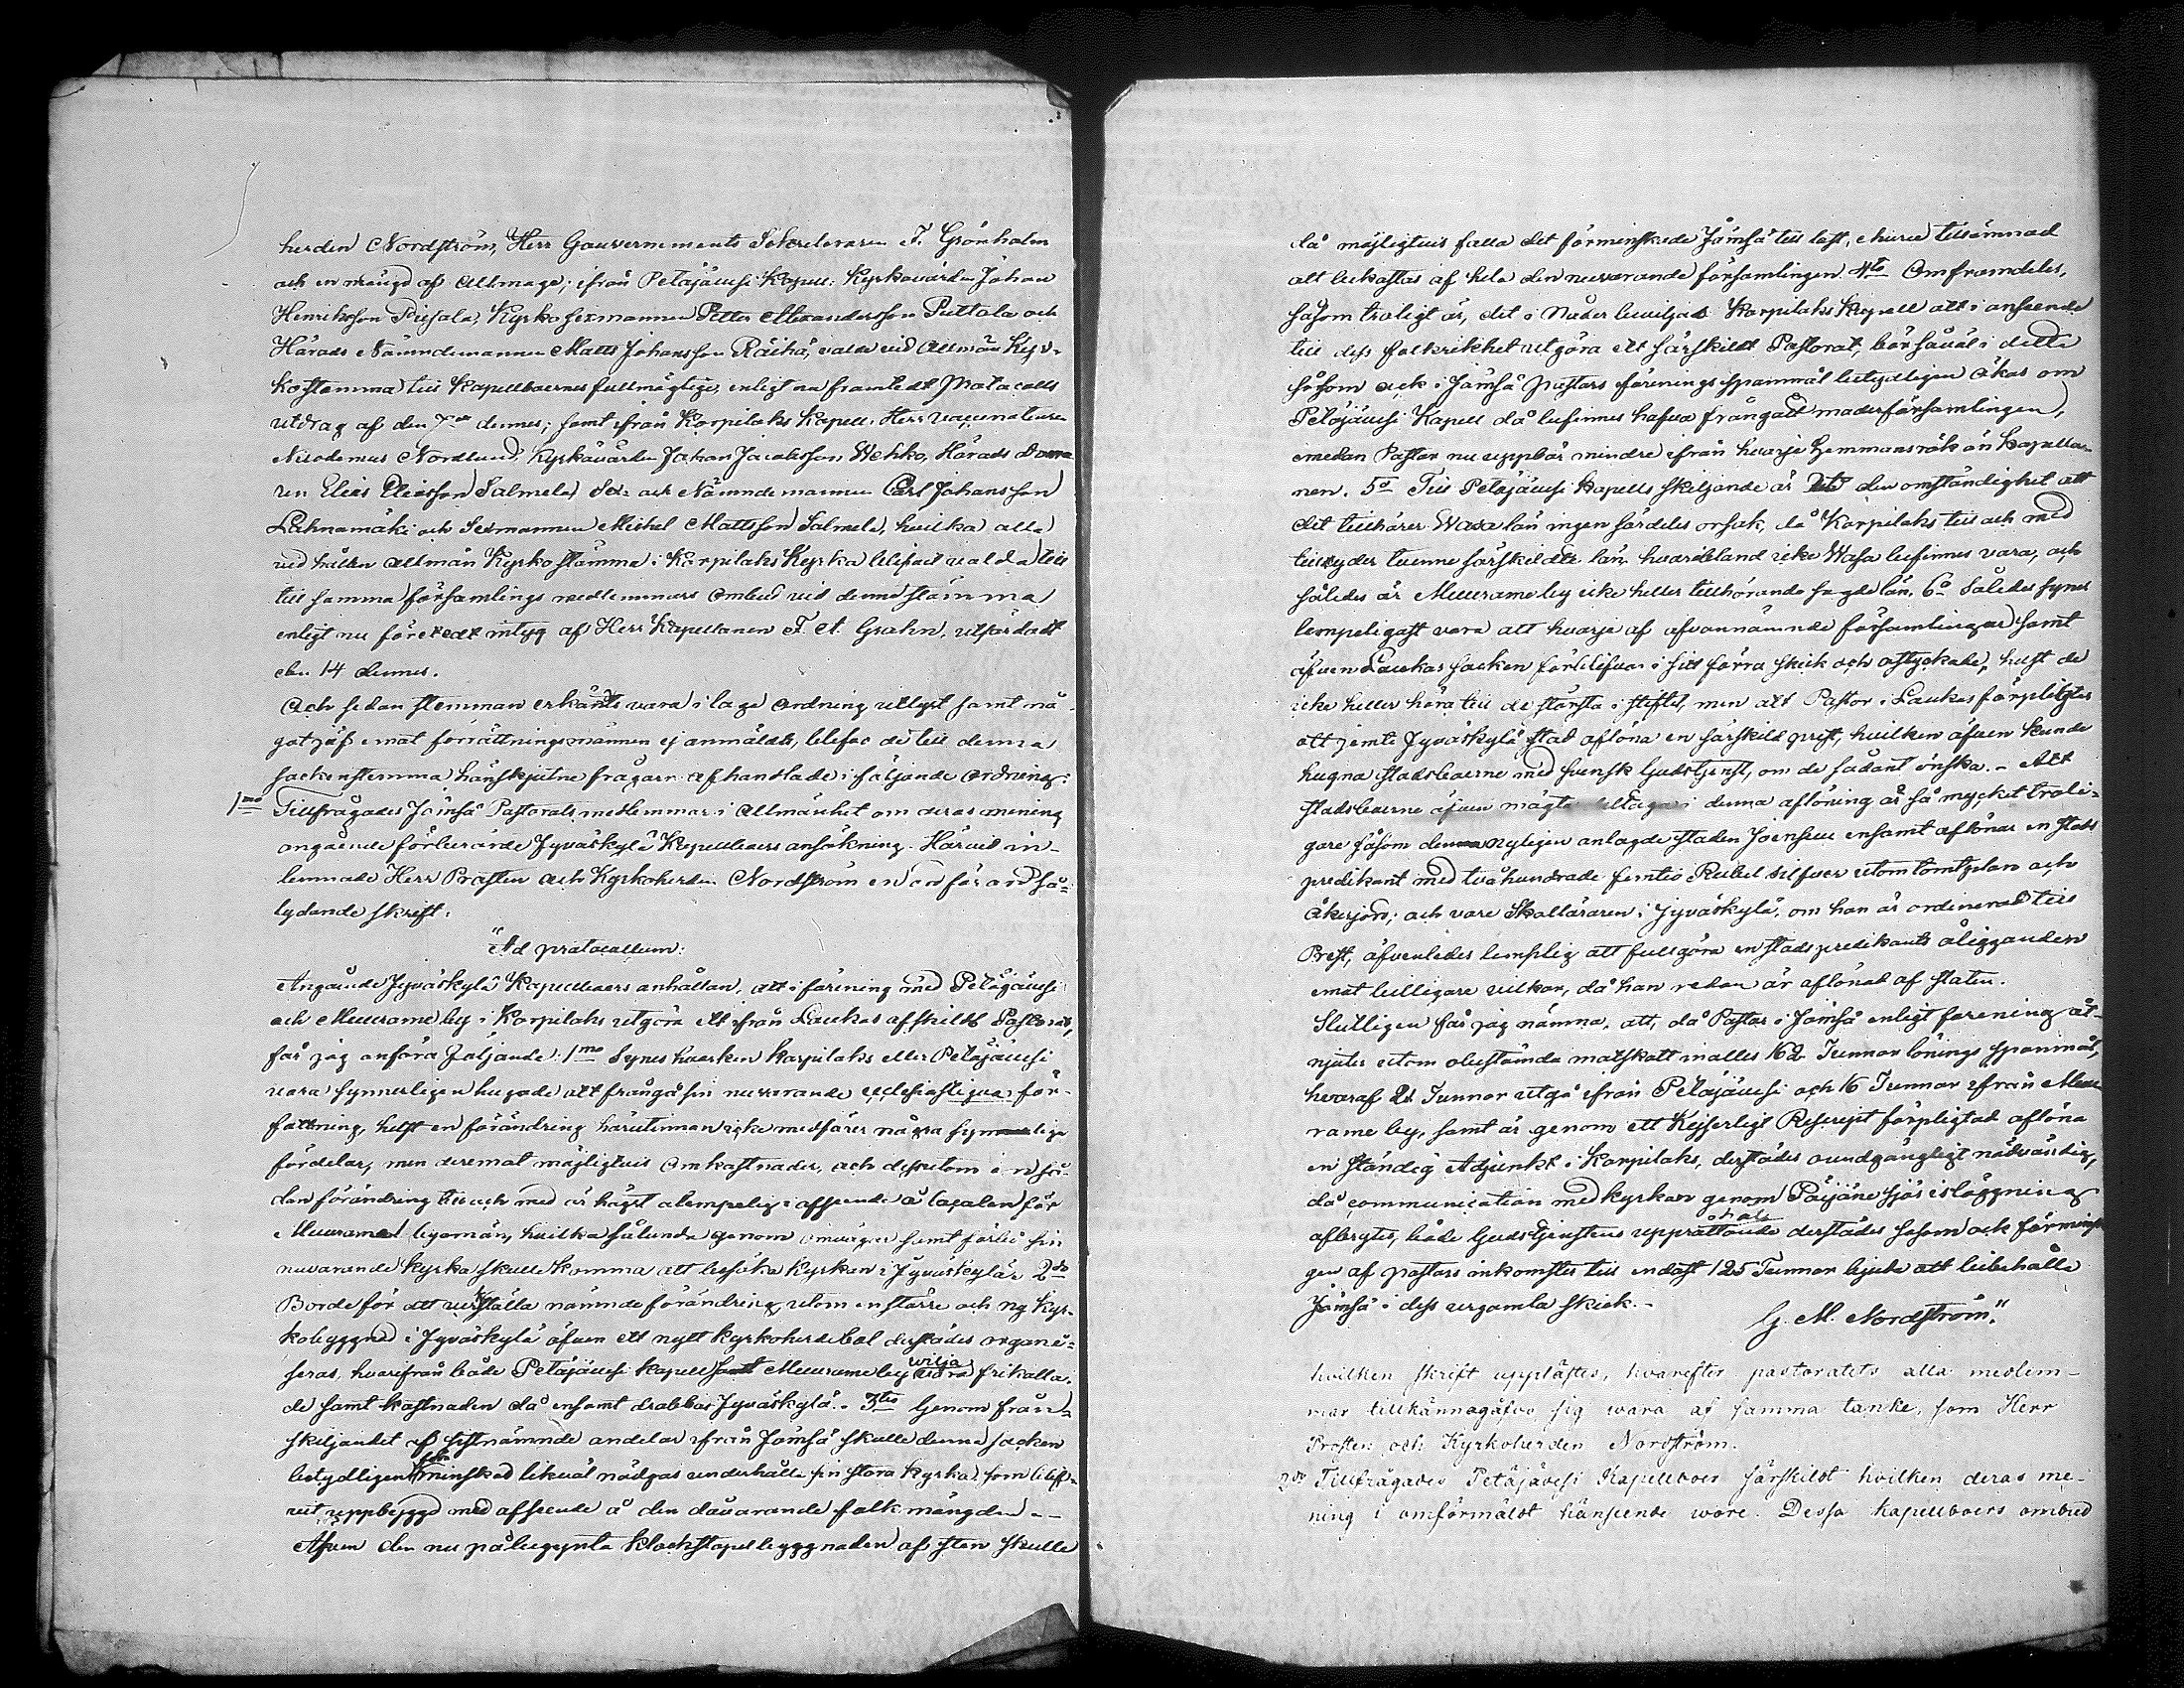 herden Nordström, Herr Gouvernements Sekreteraren F. Grönholm
och en mängd af Allmoge; ifrån Petäjäwesi Kapell: Kyrkovärden Johan
Henriksson Piesala, Kyrko sexmannen Petter Alexandersson Puttola och
Härads Nämndemannen Matts Johansson Räihä, valde vid Allmän Kyr-
kostemma till Kapellboernes fullmägtige, enligt nu framtedt Protocolls
utdrag af den 7de dennes; samt ifrån Korpilaks Kapell: Herr Vaccinateuren
Nicodemus Nordlund, Kyrkovärden Johan Jacobsson Wehko, Härads Doma-
ren Elias Eliasson Salmela, Sex- och Nämndemannen Carl Johansson
Lahnamäki och Sexmannen Michel Mattsson Salmela, hvilka alla
vid hållen allmän Kyrkostämma i Korpilaks Kyrka blifvit valda till
till samma församlings medlemmars Ombud vid denna stämma
enligt nu företedt intyg af Herr Kapellanen F. A. Grahn, utfärdadt
den 14 dennes.
Och sedan stemman erkänts vara i laga Ordning utlyst samt nå-
got jäf emot förrättningsmännen ej anmäldts, blefvo de till denna
sockenstemma hänskjutne frågor afhandlade i följande Ordning:
1mo Tillfrågades Jämsä Pastorats medlemmar i Allmänhet om deras mening
angående förberörde Jyväskylä Kapellboers ansökning. Härvid in-
lemnade Herr Prosten och Kyrkoherden Nordström en så-
lydande skrift:
"Ad protocollum:
Angående Jyväskylä Kapellboers anhållan, att i förening med Petäjäwesi
och Muurame by i Korpilaks utgöra ett ifrån Laukas afskildt Pastorat,
får jag anföra följande: 1mo Synes hvarken Korpilaks eller Petäjäwesi
vara synnerligen hugade att frångå sin nuvarande ecclesiastique för-
fattning, helst en förändring härutinnan icke medförer några synnerliga
fördelar, men deremot möjligtvis Omkostnader, och dessutom en så-
dan förändring till och med är högst olempelig i afseende å localen för
Muurame byamän, hvilka sålunda genom omvägar samt förbi sin
nuvarande Kyrka skulle komma att besöka Kyrkan i Jyväskylä. 2do
Borde för att verkställa nämnde förändring, utom en större och ny Kyr-
kobyggnad i Jyväskylä äfven ett nytt Kyrkoherdebol derstädes organi-
seras, hvarifrån både Petäjäwesi Kapell samt Muurame by wilja vara frikalla-
de samt kostnaden då ensamt drabbar Jyväskylä. 3tio Genom från-
skiljandet af sistnämnde andelar ifrån Jämsä skulle denna socken
betydligen förminskad likväl nödgas underhålla sin stora Kyrka, som blif-
vit uppbyggd med afseende å den dåvarande folkmängden.
Äfven den nu påbegynta Klockstapelbyggnaden af sten skulle
då möjligtvis falla det förminskade Jämsä till last, ehuru tillämnad
att bekostas af hela den nuvarande församlingen. 4to Om framdeles,
såsom troligt är, det i Nåder beviljade Korpilaks Kapell att i anseende
till dess folkrikhet utgöra ett särskildt Pastorat, bör såväl i detta
såsom ock i Jämsä Pastors förenings spannmål betydligen ökas om
Petäjäwesi Kapell då befinnes hafva frångått moderförsamlingen,
emedan Pastor nu uppbär mindre ifrån hvarje Hemmansrök än Kapella-
nen. 5to Till Petäjäwesi Kapells skiljande är den omständighet att
det tillhörer Wasa län ingen särdeles orsak, då Korpilaks till och med
tillyder tvenne särskilde län, hvaribland icke Wasa befinnes vara, och
således är Muurame by icke heller tillhörande sagde län. 6to Således synes
lempeligast vara att hvarje af ofvannämnde församlingar samt
äfven Laukas socken förblifver i sitt förra skick och ostyckade, helst de
icke heller höra till de största i stiftet, men att Pastor i Laukas förpligtas
att jemte Jyväskylä stad aflöna en särskild prest, hvilken äfven kunde
hugna stadsboerne med svensk Gudstjenst, om de sådant önska. – Att
stadsboerne äfven mägta deltaga i denna aflöning är så mycket troli-
gare såsom den nyligen anlagde staden Joensuu ensamt aflönar en stads
predikant med tvåhundrade femtio Rubel silfver utom tomtplan och
åkerjord; och vore Skolläraren i Jyväskylä, om han är ordinerad till
Prest, äfvenledes lemplig att fullgöra en stadspredikants åligganden
emot billigare vilkor, då han redan är aflönad af staten.
Slutligen får jag nämna, att, då Pastor i Jämsä enligt förening åt-
njuter utom obestämda matskott inalles 162 Tunnor lönings spannmål,
hvaraf 21 Tunnor utgå ifrån Petäjäwesi och 16 Tunnor ifrån Muu-
rame by, samt är genom ett Kejserligt Rescript förpligtad aflöna
en ständig Adjunkt i Korpilaks, derstädes oundgängligt nödvändig,
då communication med kyrkan genom Päijäne sjös isläggning
afbrytes, både Gudstjenstens upprättande derstädes såsom ock förminsk-
gen af pastors inkomster till endast 125 Tunnor bjuda att bibehålla
Jämsä i dess urgamla skick. –
G. M. Nordström."
hvilken skrift upplästes, hvarefter pastoratets alla medlem-
mar tillkännagåfvo sig wara af samma tanke, som Herr
Prosten och Kyrkoherden Nordström.
2do Tillfrågades Petäjäwesi Kapellboer särskildt hvilken deras me-
ning i omförmäldt hänseende wore. Dessa Kapellboers ombud